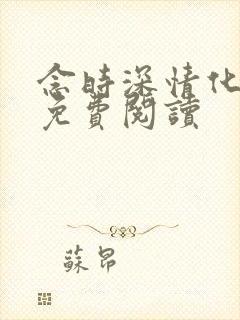 念時深情化
免費閱讀
蘇昂